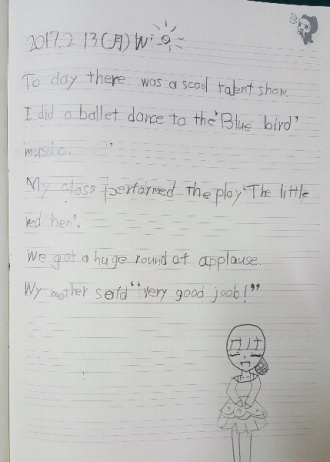 2017.2.13(月) W:
To day there was a scool talent show.
I did a ballet dance to the "Blue bird"
music.
My class performed the play "The little
red hen".
We got a huge round of applause.
My mother said "very good joob!"